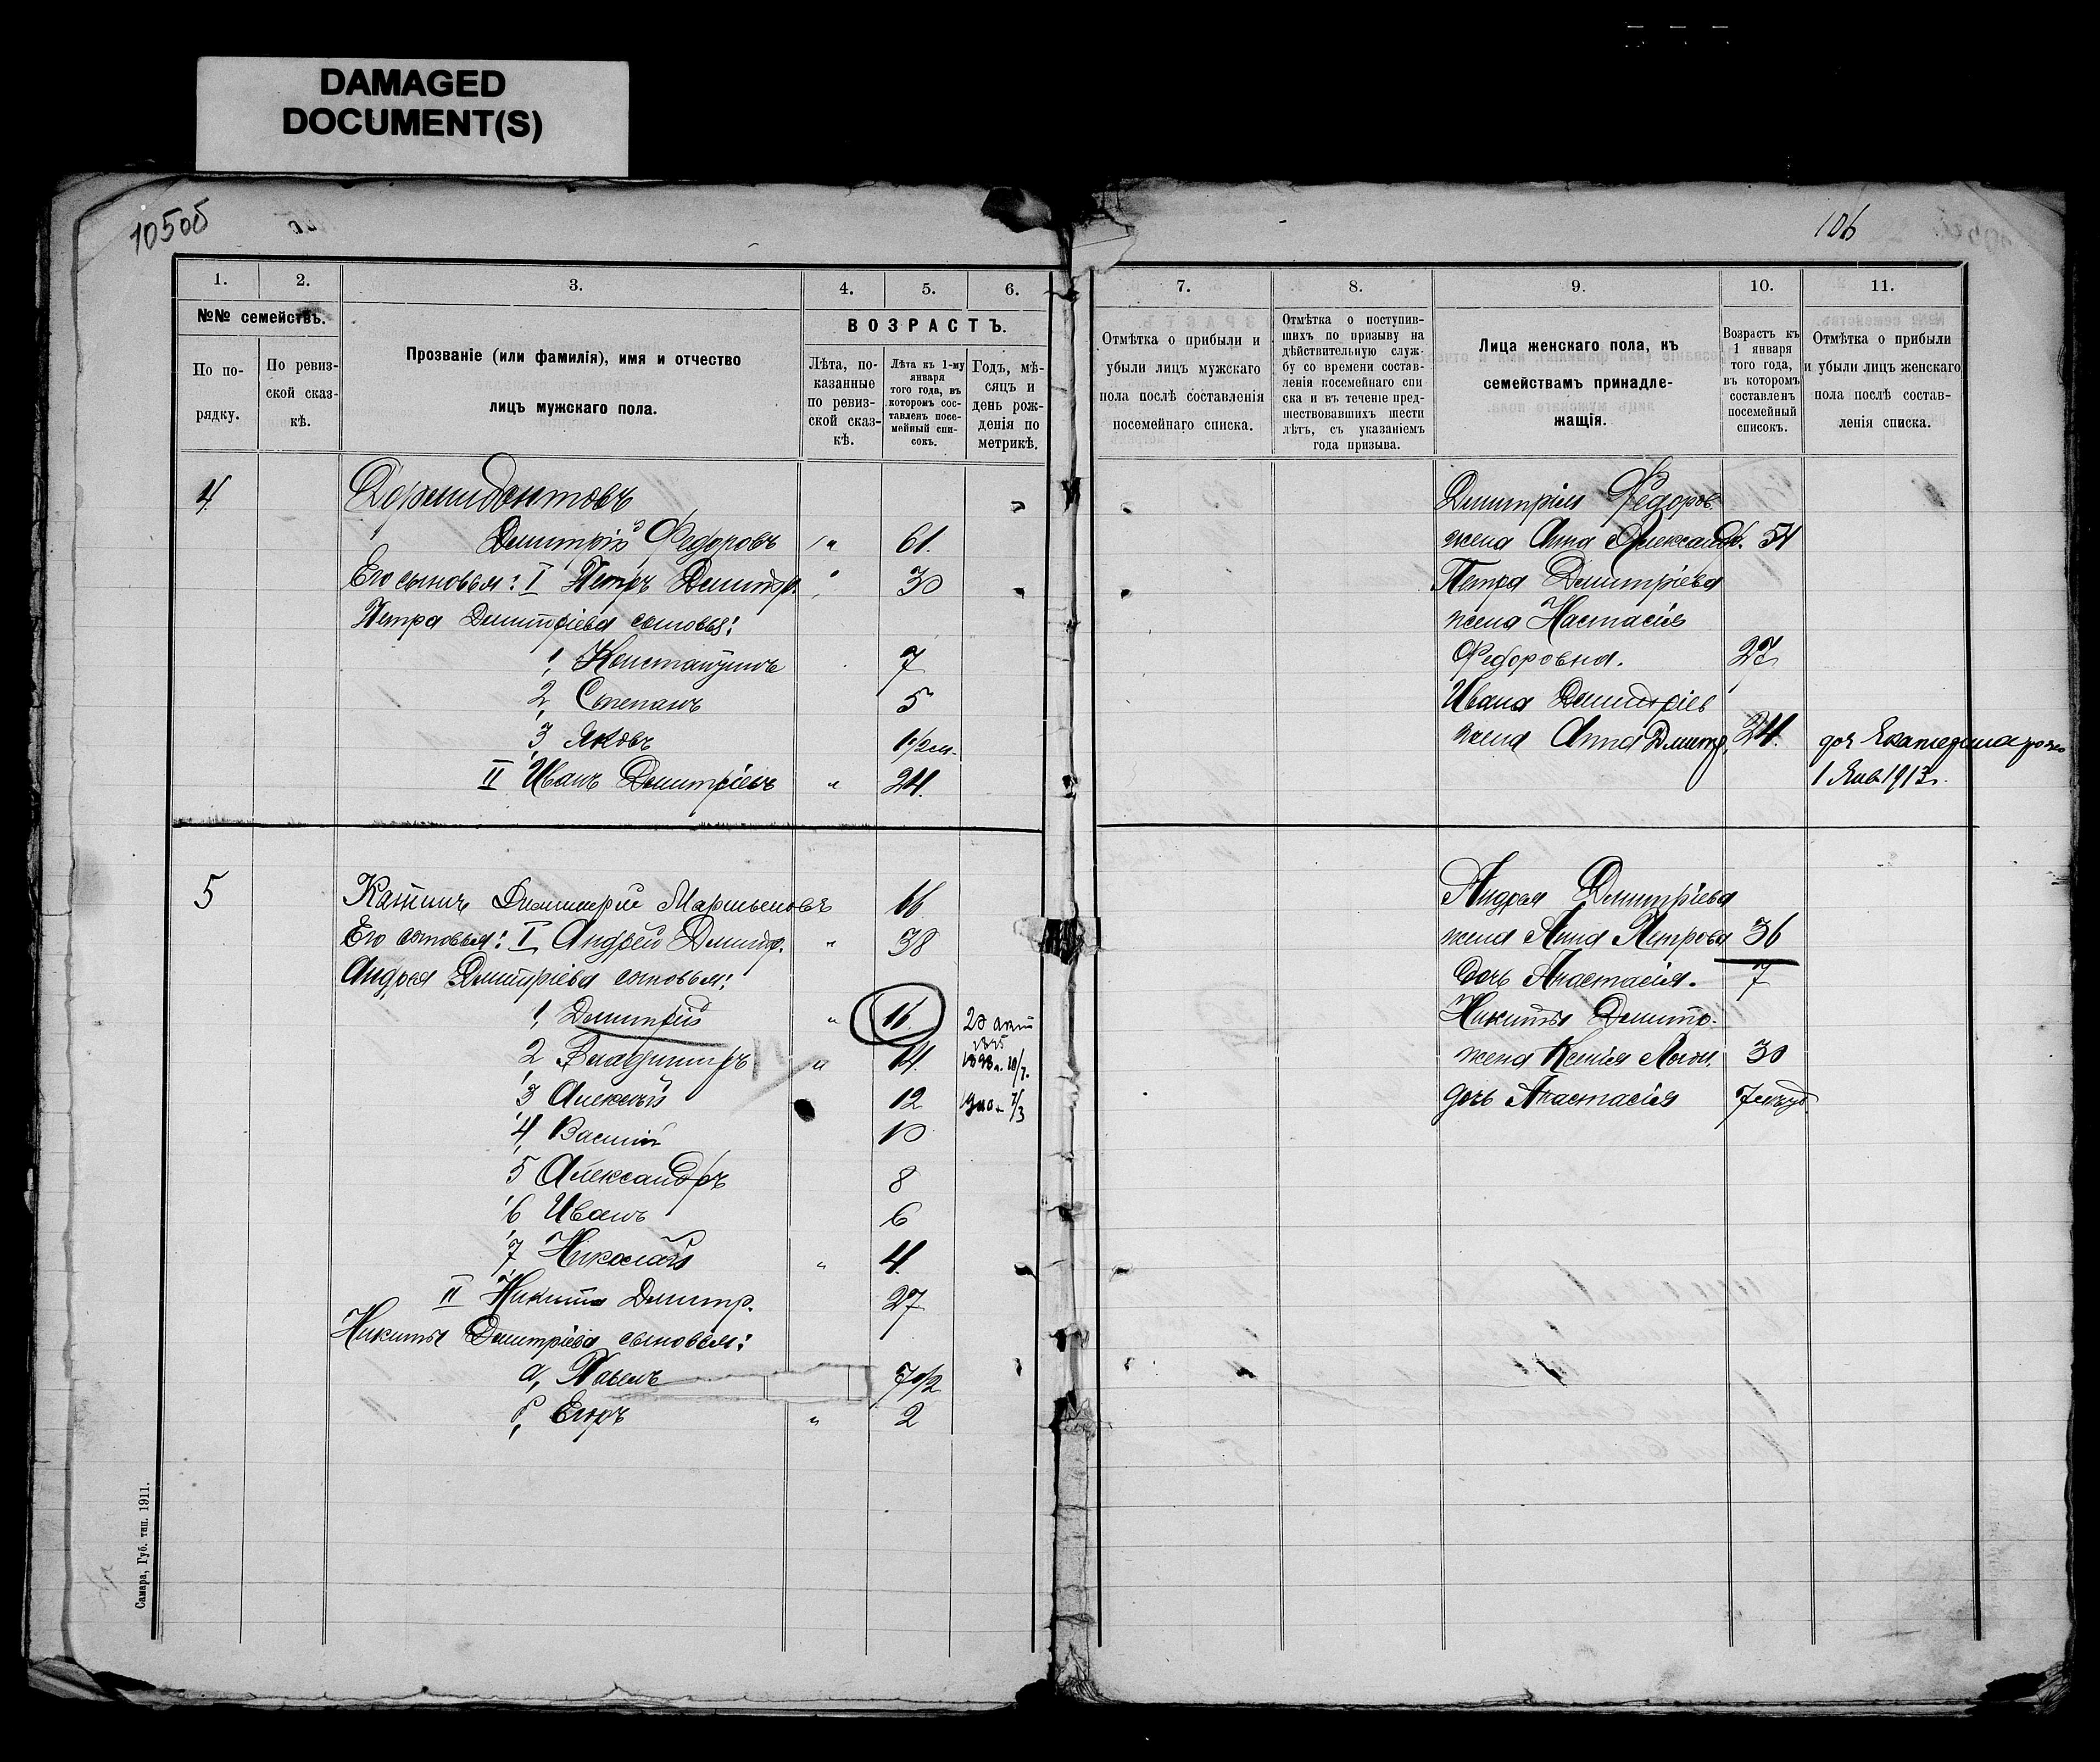 DAMAGED
DOCUMENT(S)
105об
106
1.
2.
3.
4.
5.
6.
№№ семействъ.
По по-
рядку.
По ревиз-
ской сказ-
кѣ.
Прозваніе (или фамилія), имя и отчество
лицъ мужскаго пола.
ВОЗРАСТЪ.
Лѣта, по-
казанные
по ревиз-
ской сказ-
кѣ.
Лѣта къ 1-му
января
того года, въ
которомъ сос-
тавленъ посе-
мейный спи-
сокъ.
Годъ, мѣ-
сяцъ и
день рож-
денія по
метрикѣ.
4
Дмитрій Федоровъ " 61.
Его сыновья: I Петръ Дмитр. 30
Петра Дмитріева сыновья:
1, Константинъ 7
2, Степанъ 5
3, Яковъ 1 1/2 м.
II Иванъ Дмитріевъ " 24.
5
Дмитрій Мартыновъ 66
Его сыновья: I, Андрей Дмитр. " 38
Андрея Дмитріева сыновья:
1, Дмитрій " 16.
2, Владиміръ " 14.
3, Алексѣй 12
4, Василій 10
5, Александръ 8
6, Иванъ 6
7, Николай " 4.
II Никита Дмитр. 27
Никиты Дмитріева сыновья:
а, Павелъ
б, Егоръ " 2
Самара, Губ. тип. 1911.
7.
8.
9.
10.
11.
Отмѣтка о прибыли и
убыли лицъ мужскаго
пола послѣ составленія
посемейнаго списка.
Отмѣтка о поступив-
шихъ по призыву на
дѣйствительную служ-
бу со времени состав-
ленія посемейнаго спи
ска и въ теченіе пред-
шествовавшихъ шести
лѣтъ, съ указаніемъ
года призыва.
Лица женскаго пола, къ
семействамъ принадле-
жащія.
Возрастъ къ
1 января
того года,
въ которомъ
составленъ
посемейный
списокъ.
Отмѣтка о прибыли
и убыли лицъ женскаго
пола послѣ состав-
ленія списка.
Дмитрія Федоров.
жена Анна Александр. 54
Петра Дмитріева
жена Настасія
Федоровна. 27
Ивана Дмитріев
жена Анна Дмитр. 24.
доч Екатерина
1 Янв 1913г.
Андрея Дмитріева
жена Анна Петрова 36
дочь Анастасія. 7
Никиты Дмитр.
жена Ксенія 30
дочь Анастасія